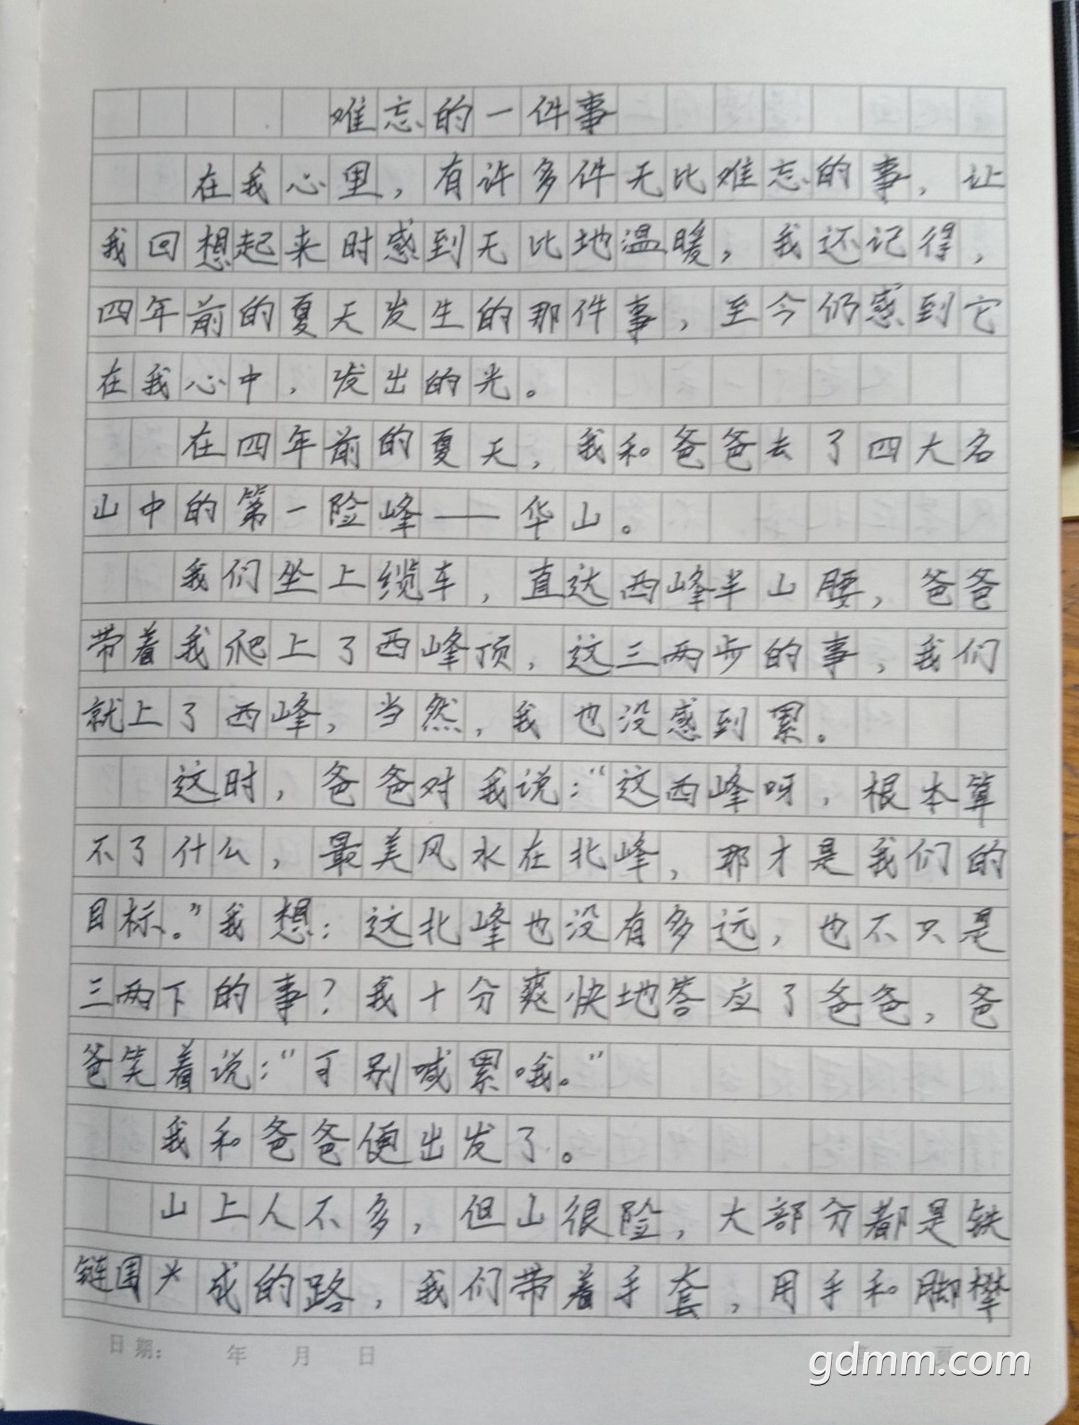 难忘的一件事
在我心里，有许多件无比难忘的事，让
我回想起来时感到无比地温暖，我还记得，
四年前的夏天发生的那件事，至今仍感到它
在我心中，发出的光。
在四年前的夏天，我和爸爸去了四大名
山中的第一险峰——华山。
我们坐上缆车，直达西峰半山腰，爸爸
带着我爬上了西峰顶，这三两步的事，我们
就上了西峰，当然，我也没感到累。
这时，爸爸对我说：“这西峰呀，根本算
不了什么，最美风水在北峰，那才是我们的
目标。”我想：这北峰也没有多远，也不只是
三两下的事？我十分爽快地答应了爸爸，爸
爸笑着说：“可别喊累哦。”
我和爸爸便出发了。
山上人不多，但山很险，大部分都是铁
链围成的路，我们带着手套，用手和脚攀
日期： 年 月 日
gdmm.com